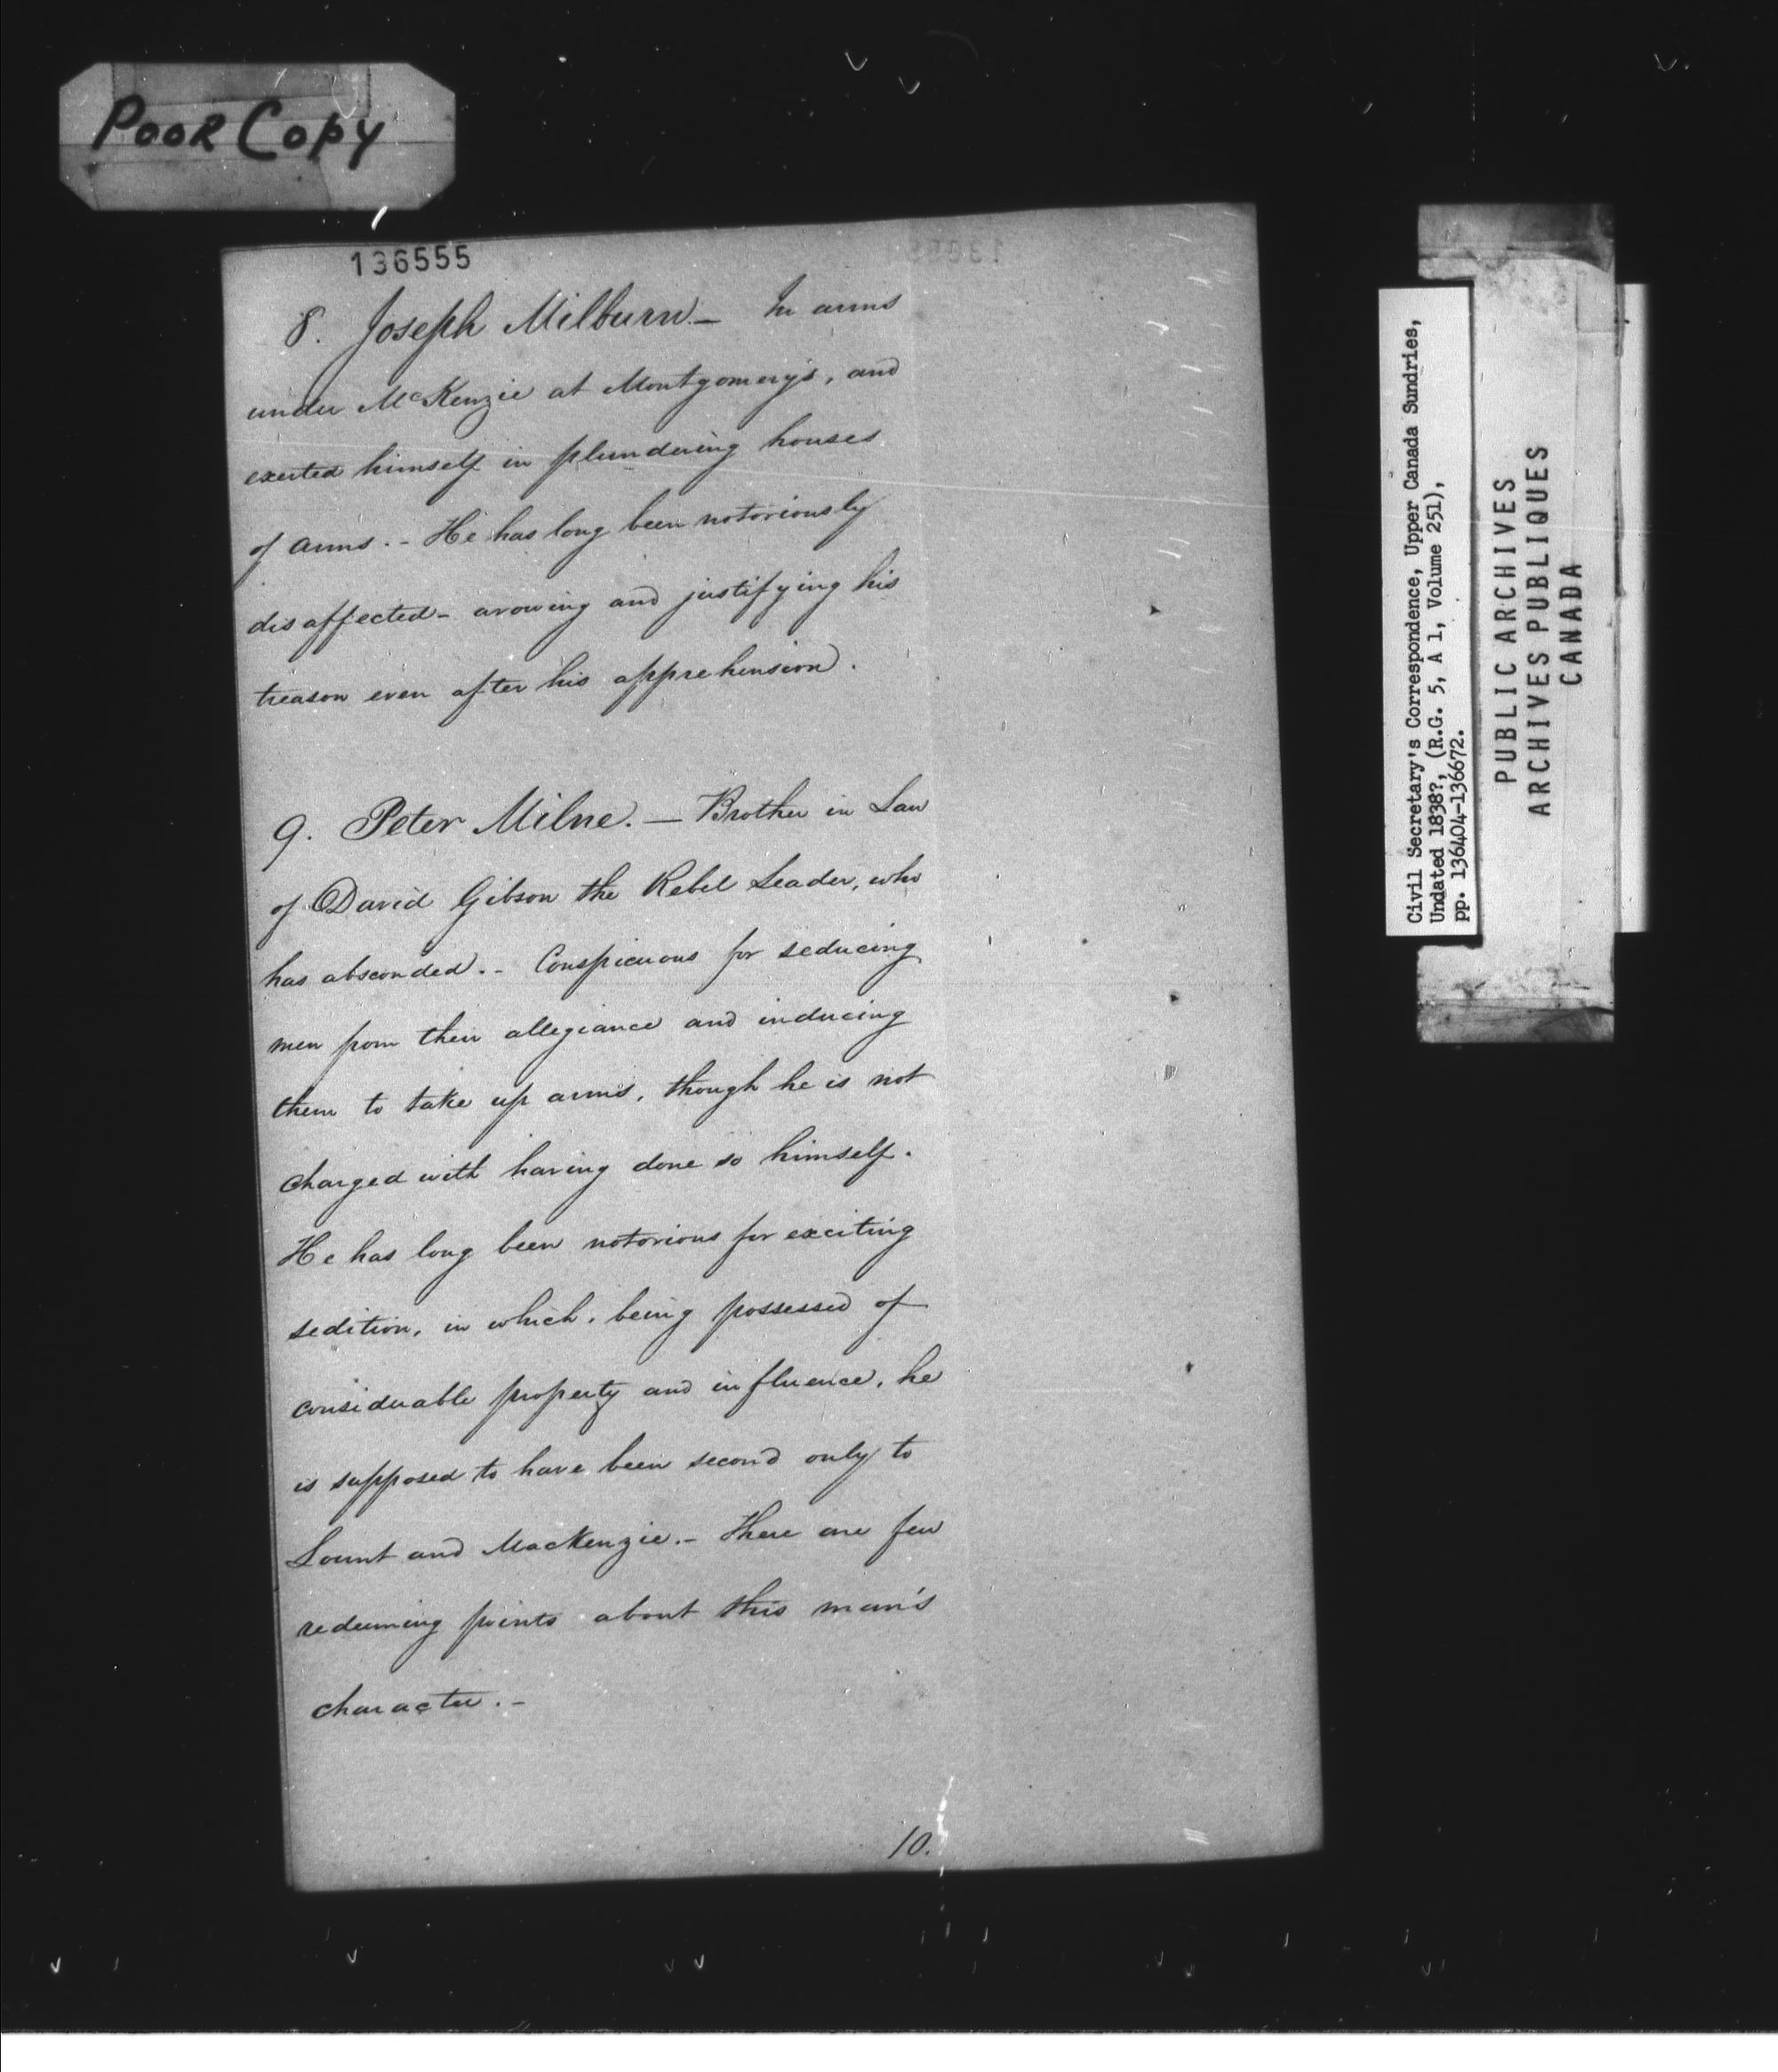 POOR COPY
136555
8. Joseph Milburn – In arms
under McKenzie at Montgomery's, and
exerted himself in plundering houses
of arms. – He has long been notoriously
disaffected – avowing and justifying his
treason even after his apprehension.
9. Peter Milne. – Brother in Law
of David Gibson the Rebel Leader, who
has absconded. – Conspicuous for seducing
men from their allegiance and inducing
them to take up arms, though he is not
charged with having done so himself.
He has long been notorious for exciting
sedition, in which, being possessed of
considerable property and influence, he
is supposed to have been second only to
Lount and MacKenzie. – There are few
redeeming points about this man's
character. –
10.
Civil Secretary's Correspondence, Upper Canada Sundries,
Undated 1838?, (R.G. 5, A 1, Volume 251),
pp. 136404-136672.
PUBLIC ARCHIVES
ARCHIVES PUBLIQUES
CANADA